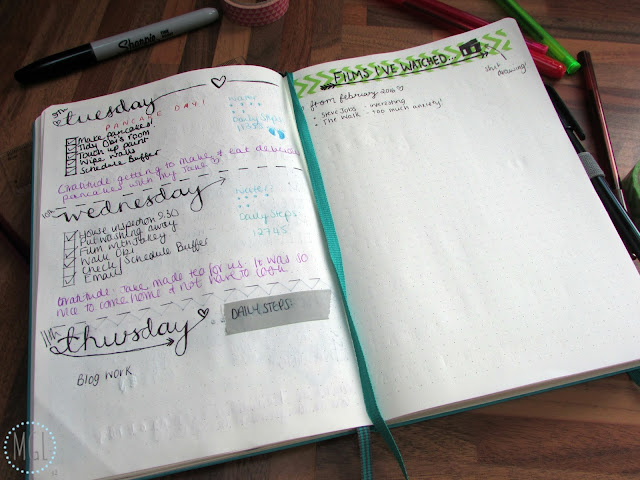 Sharpie
tuesday
PANCAKE DAY!
Make pancakes!
Tidy Obi's room
Touch up paint
Wipe walls
Schedule Buffer
Water
Daily Steps
Gratitude: getting to make & eat delicious
pancakes with my Jake
wednesday
House inspection 9.30
Put washing away
Film with Jakey
Walk Obi
Check/Schedule Buffer
Email
Water
Daily Steps
12745
Gratitude: Jake made tea for us. It was so
nice to come home & not have to cook
thursday
DAILY STEPS:
Blog work
FILMS I'VE WATCHED...
shit
drawing!
from february 2016
Steve Jobs - interesting
The Walk - too much anxiety!
MGL